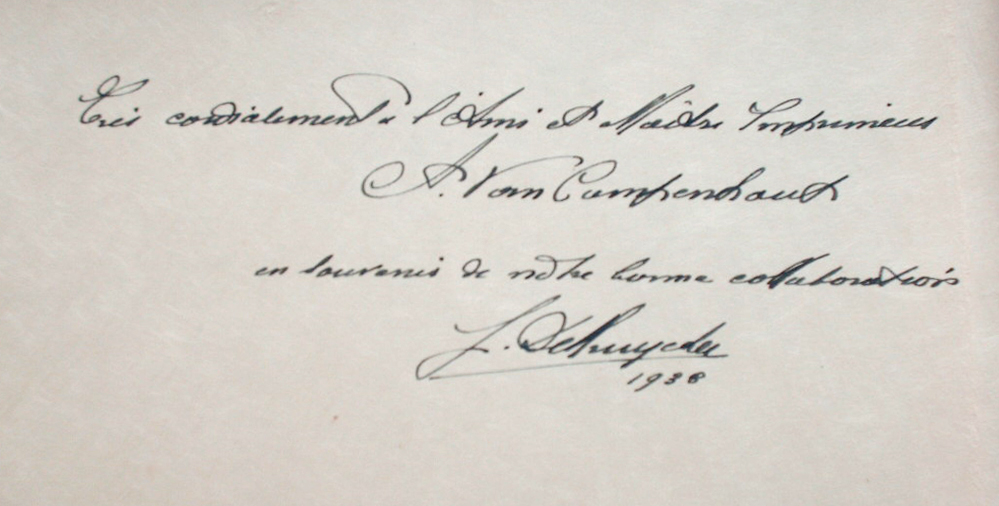 Très cordialement à l'Ami et Maître Imprimeur
A. Van Campenhout
en souvenir de notre bonne collaboration
J. De Kuyeder
1938